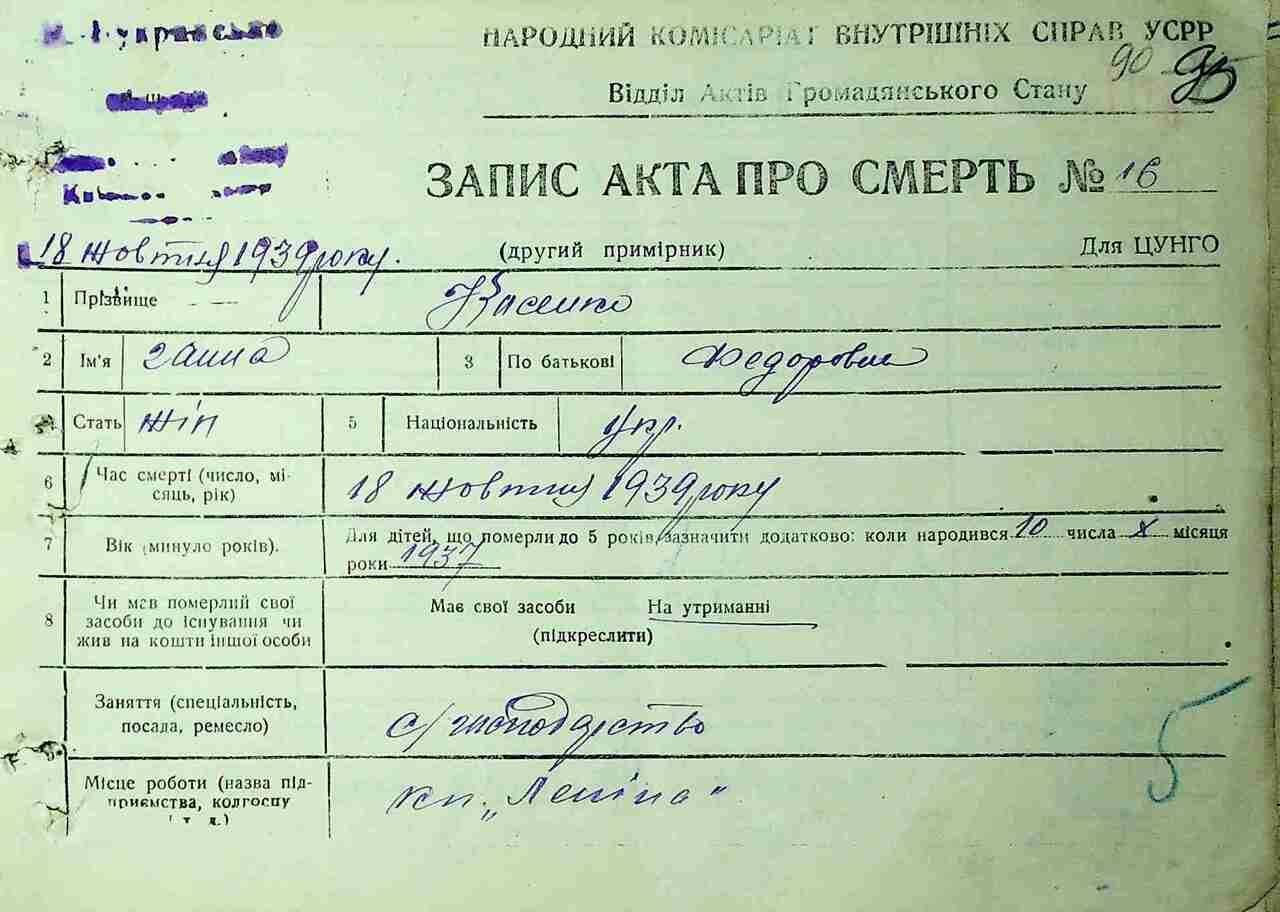 НАРОДНИЙ КОМІСАРІАТ ВНУТРІШНІХ СПРАВ УСРР
90
Відділ Актів Громадянського Стану
ЗАПИС АКТА ПРО СМЕРТЬ № 16
18 жовтня 1939 року. (другий примірник) Для ЦУНГО
1 Прізвище
2 Ім'я Ганна 3 По батькові Федоровна
Стать жін 5 Національність укр.
6 Час смерті (число, мі-
сяць, рік) 18 жовтня 1939 року
7 Вік (минуло років). Для дітей, що померли до 5 років, зазначити додатково: коли народився 10 числа X місяця
роки 1937
8 Чи мав померлий свої
засоби до існування чи
жив на кошти іншої особи Має свої засоби На утриманні
(підкреслити)
Заняття (спеціальність,
посада, ремесло) с/господарство
5
Місце роботи (назва під-
приємства, колгоспу
і т. д.) кп. „Леніна"